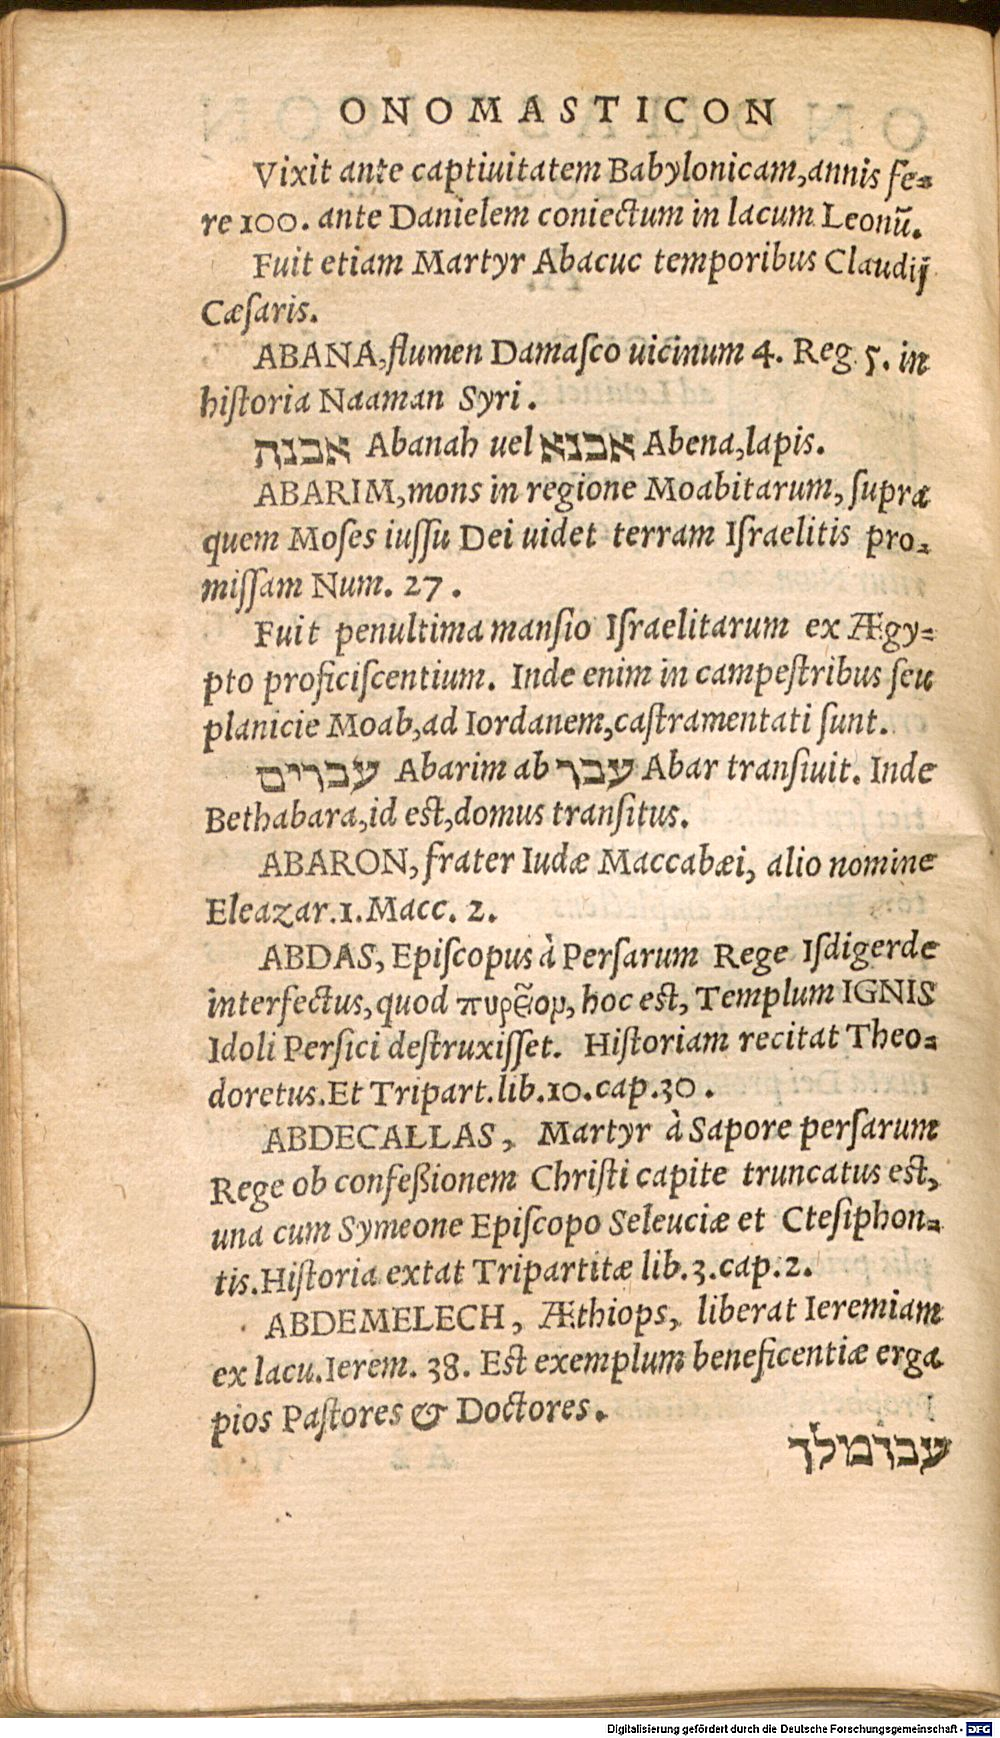 ONOMASTICON
Vixit ante captiuitatem Babylonicam, annis fe-
re 100. ante Danielem coniectum in lacum Leonũ.
Fuit etiam Martyr Abacuc temporibus Claudij
Cæſaris.
ABANA, flumen Damaſco uicinum 4. Reg. 5. in
hiſtoria Naaman Syri.
אבנה Abanah uel אבנא Abena, lapis.
ABARIM, mons in regione Moabitarum, ſupra
quem Moſes iuſſu Dei uidet terram Iſraelitis pro-
miſſam Num. 27.
Fuit penultima manſio Iſraelitarum ex Ægy-
pto proficiſcentium. Inde enim in campeſtribus ſeu
planicie Moab, ad Iordanem, caſtramentati ſunt.
עברים Abarim ab עבר Abar tranſiuit. Inde
Bethabara, id eſt, domus tranſitus.
ABARON, frater Iudæ Maccabæi, alio nomine
Eleazar. 1. Macc. 2.
ABDAS, Epiſcopus à Perſarum Rege Iſdigerde
interfectus, quod hoc eſt, Templum IGNIS
Idoli Perſici deſtruxiſſet. Hiſtoriam recitat Theo-
doretus. Et Tripart. lib. 10. cap. 30.
ABDECALLAS, Martyr à Sapore perſarum
Rege ob confeßionem Chriſti capite truncatus eſt,
una cum Symeone Epiſcopo Seleuciæ et Cteſiphon-
tis. Hiſtoria extat Tripartitæ lib. 3. cap. 2.
ABDEMELECH, Æthiops, liberat Ieremiam
ex lacu. Ierem. 38. Eſt exemplum beneficentiæ erga
pios Paſtores & Doctores.
עבדמלך
Digitalisierung gefördert durch die Deutsche Forschungsgemeinschaft - DFG